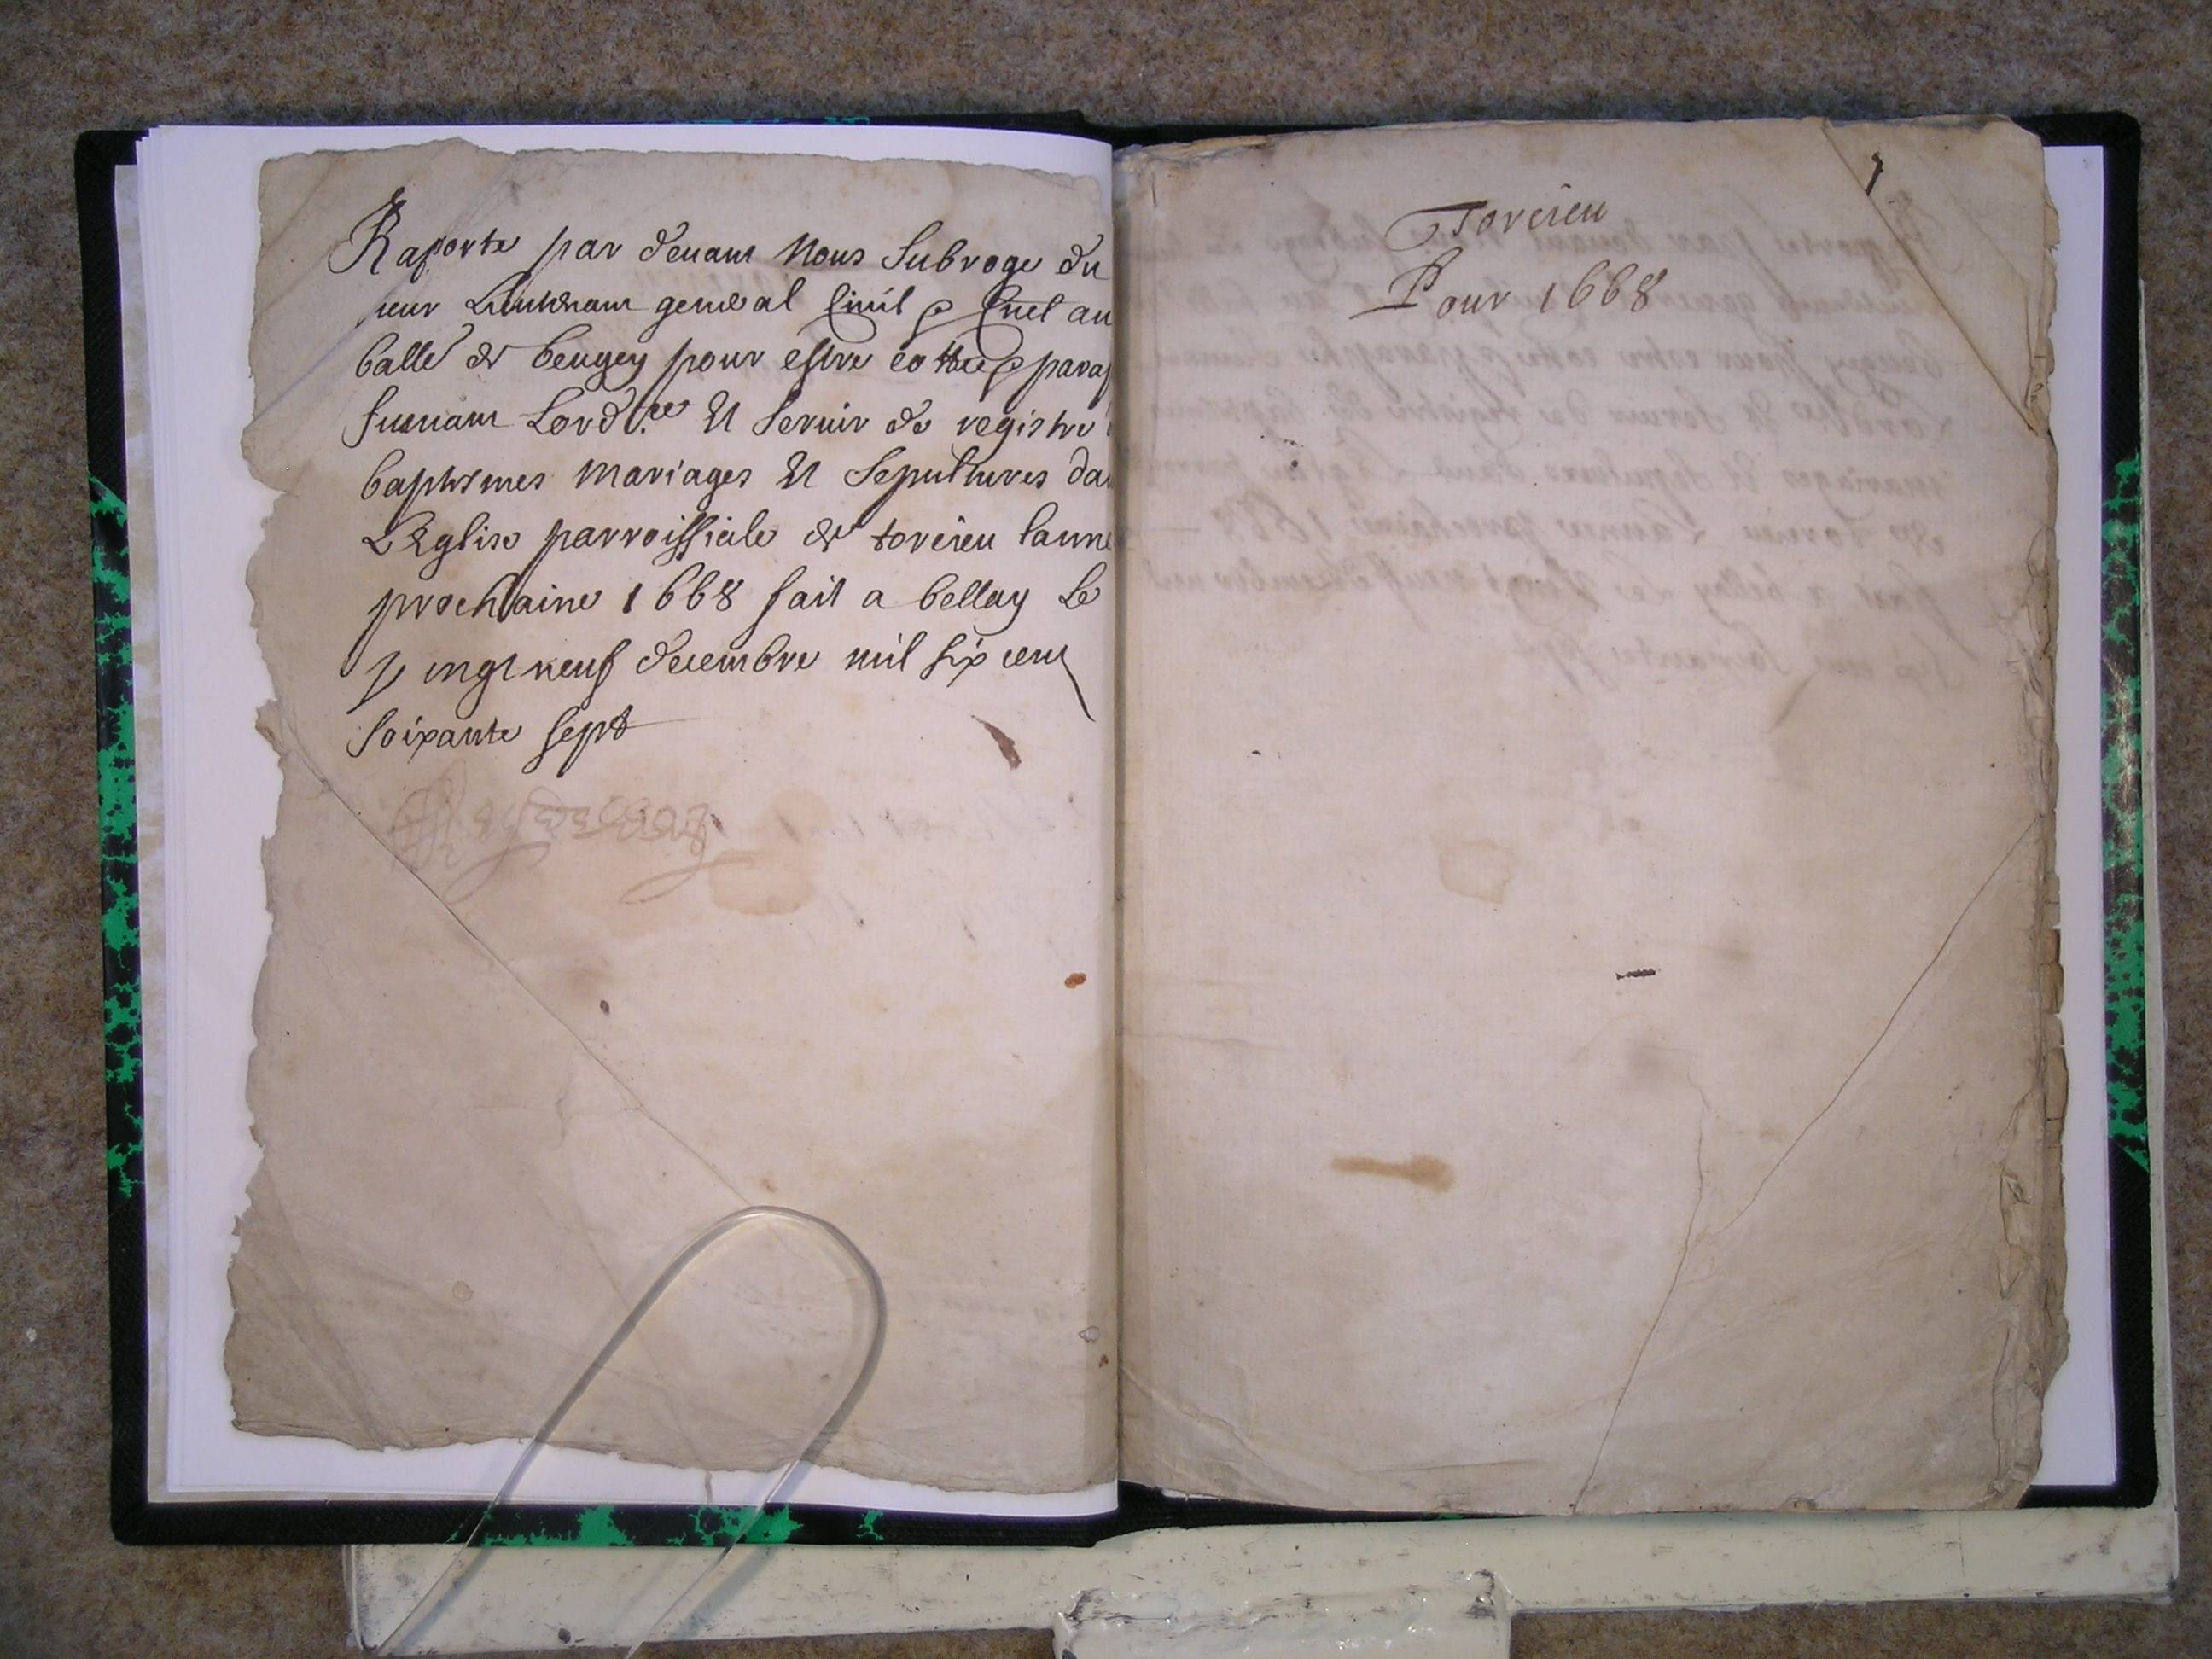 Raporte par deuant Nous Subroge du
sieur Lieutenant general Ciuil & Cruel au
balle de beugey pour estre cottee & parap
suiuant Lord.ce Et Seruir de registre
baptesmes mariages Et Sepultures da
LEglise parroissiale de torcieu lanne
prochaine 1668 fait a bellay Le
Vingt neuf decembre mil six cent
soixante sept
Torcieu
Pour 1668